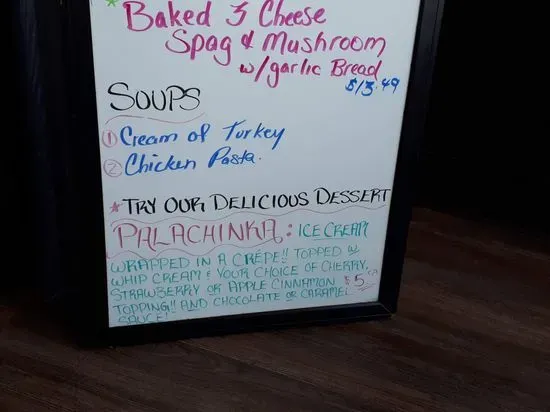 * Baked 3 Cheese
Spag & Mushroom
w/garlic Bread
$13.49
SOUPS
① Cream of Turkey
② Chicken Pasta.
* TRY OUR DELICIOUS DESSERT
PALACHINKA: ICE CREAM
WRAPPED IN A CRÊPE!! TOPPED W/
WHIP CREAM & YOUR CHOICE OF CHERRY,
STRAWBERRY OR APPLE CINNAMON $5
TOPPING!! AND CHOCOLATE OR CARAMEL
SAUCE!